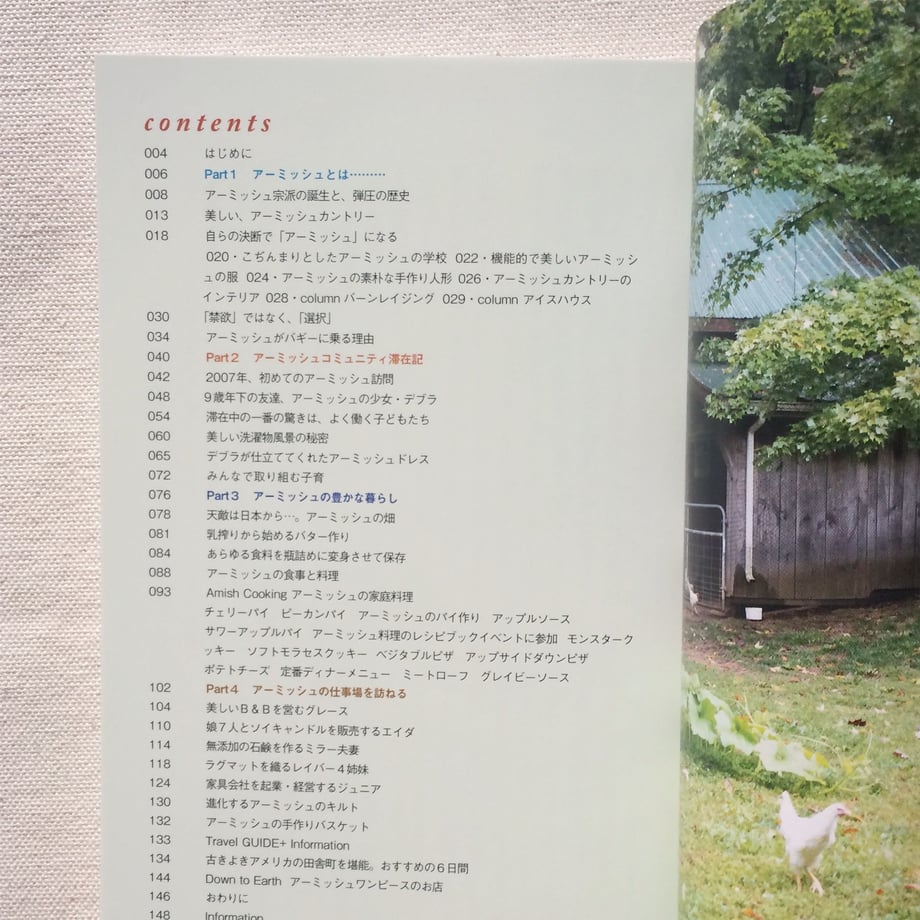 contents
004 はじめに
006 Part1 アーミッシュとは………
008 アーミッシュ宗派の誕生と、弾圧の歴史
013 美しい、アーミッシュカントリー
018 自らの決断で「アーミッシュ」になる
020・こぢんまりとしたアーミッシュの学校 022・機能的で美しいアーミッシ
ュの服 024・アーミッシュの素朴な手作り人形 026・アーミッシュカントリーの
インテリア 028・column バーンレイジング 029・column アイスハウス
030 「禁欲」ではなく、「選択」
034 アーミッシュがバギーに乗る理由
040 Part2 アーミッシュコミュニティ滞在記
042 2007年、初めてのアーミッシュ訪問
048 9歳年下の友達、アーミッシュの少女・デブラ
054 滞在中の一番の驚きは、よく働く子どもたち
060 美しい洗濯物風景の秘密
065 デブラが仕立ててくれたアーミッシュドレス
072 みんなで取り組む子育
076 Part3 アーミッシュの豊かな暮らし
078 天敵は日本から…。アーミッシュの畑
081 乳搾りから始めるバター作り
084 あらゆる食料を瓶詰めに変身させて保存
088 アーミッシュの食事と料理
093 Amish Cooking アーミッシュの家庭料理
チェリーパイ ピーカンパイ アーミッシュのパイ作り アップルソース
サワーアップルパイ アーミッシュ料理のレシピブックイベントに参加 モンスターク
ッキー ソフトモラセスクッキー ベジタブルピザ アップサイドダウンピザ
ポテトチーズ 定番ディナーメニュー ミートローフ グレイビーソース
102 Part4 アーミッシュの仕事場を訪ねる
104 美しいB&Bを営むグレース
110 娘7人とソイキャンドルを販売するエイダ
114 無添加の石鹸を作るミラー夫妻
118 ラグマットを織るレイバー4姉妹
124 家具会社を起業・経営するジュニア
130 進化するアーミッシュのキルト
132 アーミッシュの手作りバスケット
133 Travel GUIDE+ Information
134 古きよきアメリカの田舎町を堪能。おすすめの6日間
144 Down to Earth アーミッシュワンピースのお店
146 おわりに
148 Information